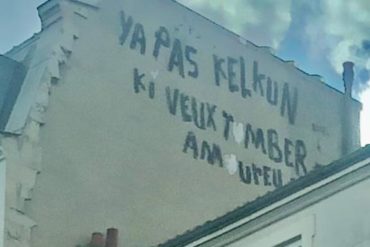 YA PAS KELKUN
KI VEUX TOMBER
AMOUREU